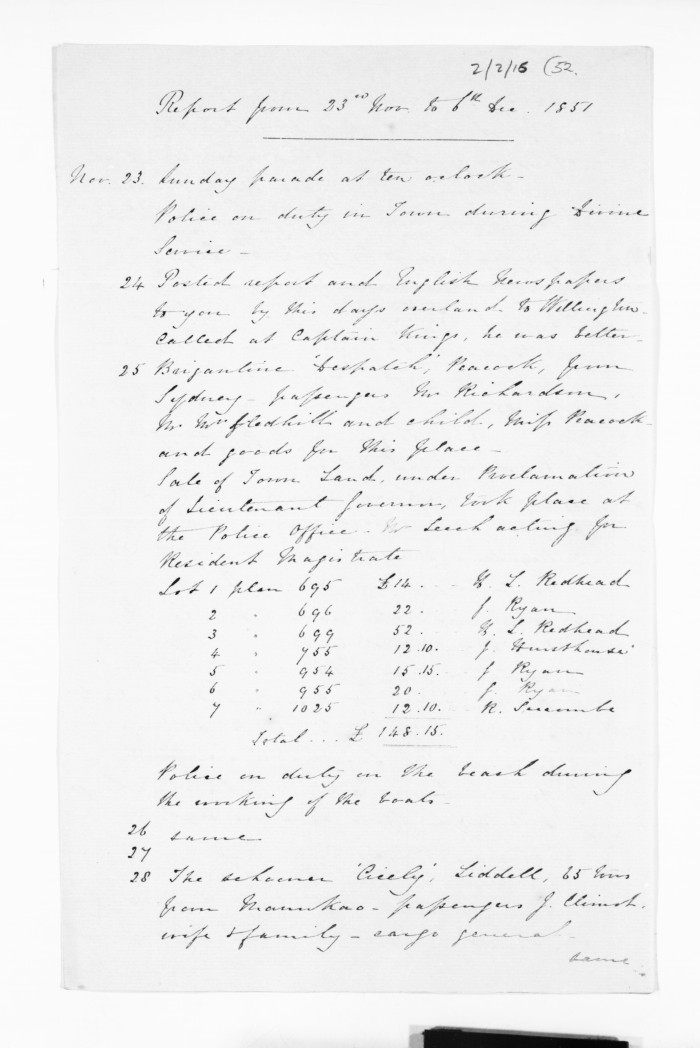 2/2/15 (52.
Report from 23rd Nov. to 6th Dec. 1851
Nov. 23. Sunday parade at ten o'clock -
Police on duty in Town during Divine
Service -
24 Posted report and English Newspapers
to you by this days overland to Wellington -
Called at Captain Kings, he was better -
25 Brigantine 'Despatch', Peacock, from
Sydney - passengers Mr Richardson,
Mr Mrs Gledhill and child, Miss Peacock -
and goods for this place -
Sale of Town Land, under Proclamation
of Lieutenant Governor, took place at
the Police Office - Mr Leech acting for
Resident Magistrate
Lot 1 plan 695 £14 . . . . L. Redhead
2 " 696 22 . . J. Ryan
3 " 699 52 . . L. Redhead
4 " 755 12.10. J. Hursthouse
5 " 954 15.15. J. Ryan
6 " 955 20. J. Ryan
7 " 1025 12.10. R. Seccombe
Total . . . £ 148.15.
Police on duty on the beach during
the working of the boats -
26 same
27
28 The schooner 'Cicely', Liddell, 25 tons
from Manukao - passengers J. Climoh,
wife & family - cargo general -
same